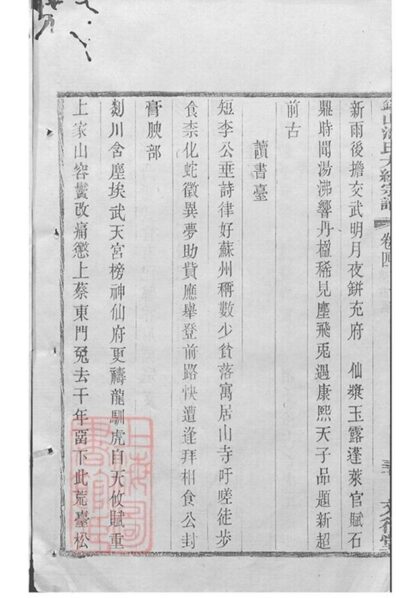 新雨後擔交武明月夜缾充府　仙漿玉露蓬萊官賦石
鼎時聞湯沸響丹楹稀見塵飛兎遇康熙天子品題新超
前古
讀書臺
短李公垂詩律好蘇州稱數少貧落寓居山寺吁嗟徒步
食柰化蛇徵異夢助貲應舉登前路快遭逢拜相食公封
膏腴部
剡川舍塵埃武天宮榜神仙府更禱龍馴虎自天攸賦重
上家山容鬢改痛懲上蔡東門兔去千年留下此荒臺松
氏大統宗譜
卷四